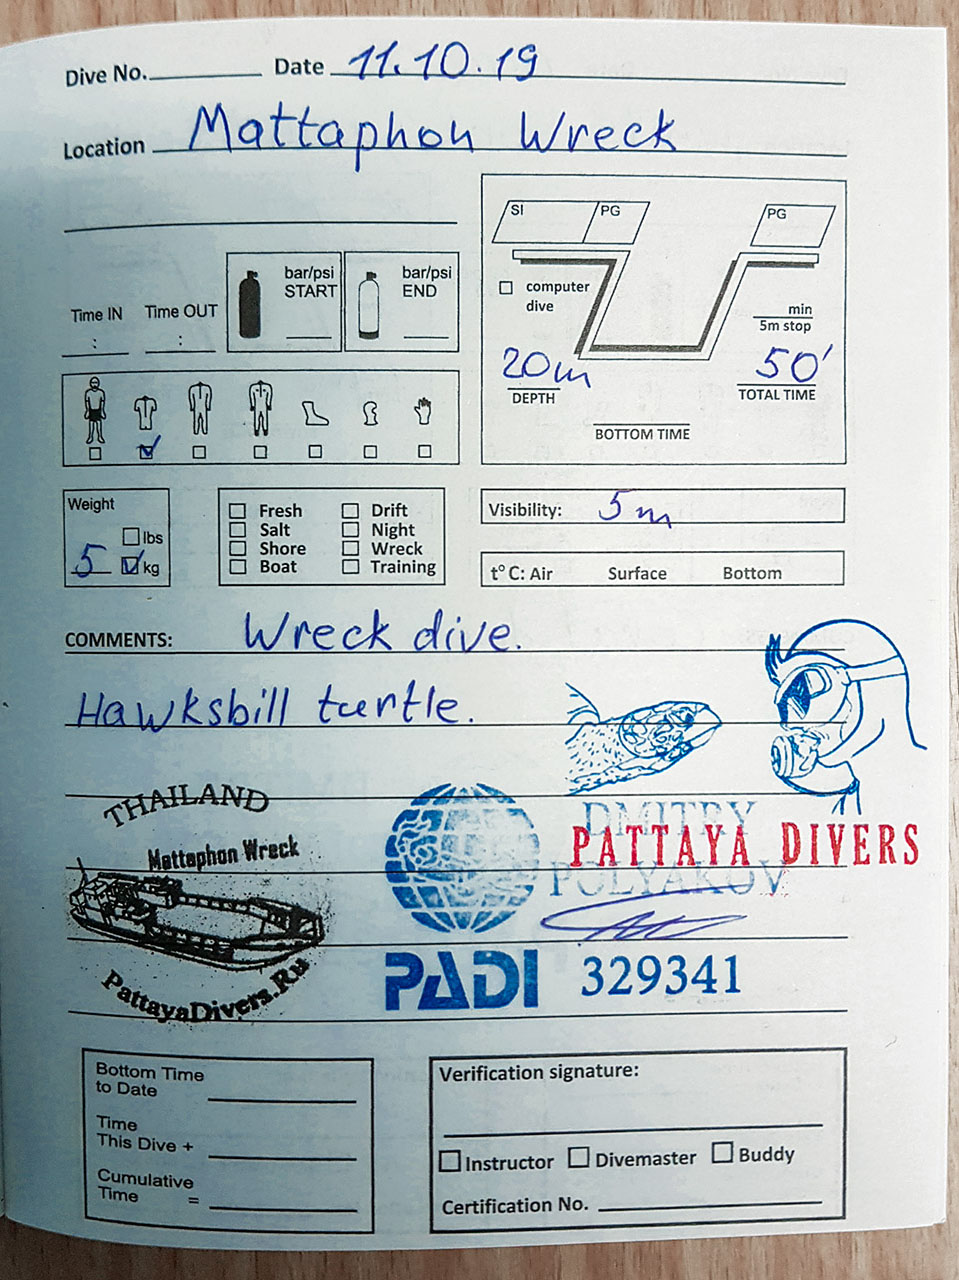 Dive No. Date 11.10.19
Location Mattaphon Wreck
SI PG PG
bar/psi START bar/psi END
Time IN Time OUT
: :
computer dive
min
5m stop
20m 50'
DEPTH TOTAL TIME
BOTTOM TIME
Weight
lbs
5 kg
Fresh Drift
Salt Night
Shore Wreck
Boat Training
Visibility: 5m
t° C: Air Surface Bottom
COMMENTS: Wreck dive.
Hawksbill turtle.
THAILAND
Mattaphon Wreck
PattayaDivers.Ru
DMITRY
PATTAYA DIVERS
POLYAKOV
PADI 329341
Bottom Time to Date
Time This Dive +
Cumulative Time =
Verification signature:
Instructor Divemaster Buddy
Certification No.